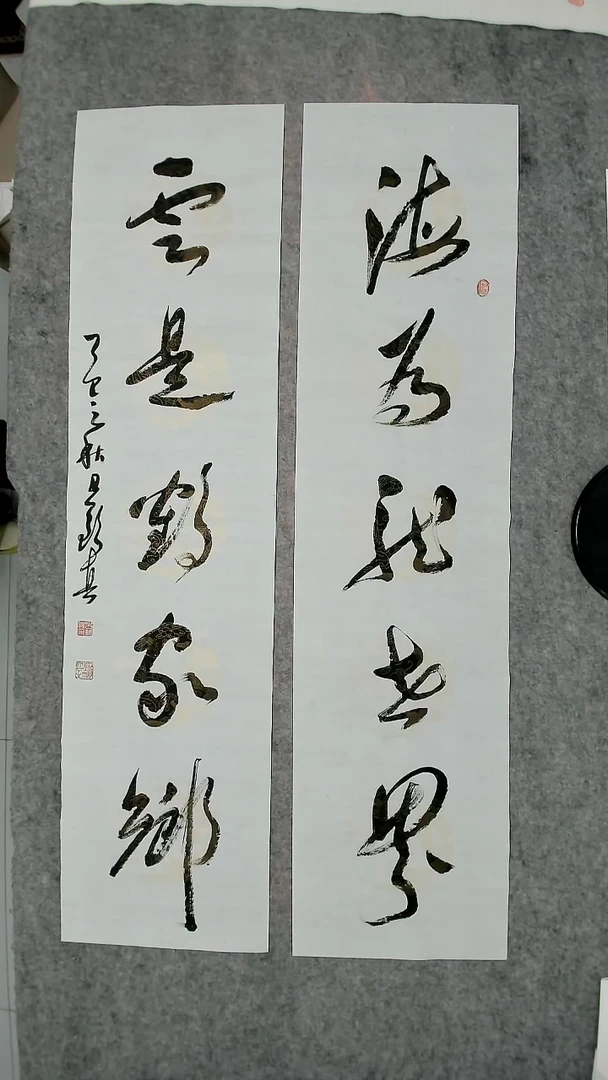 海為龍世界
雲是鶴家鄉
乙巳之秋月